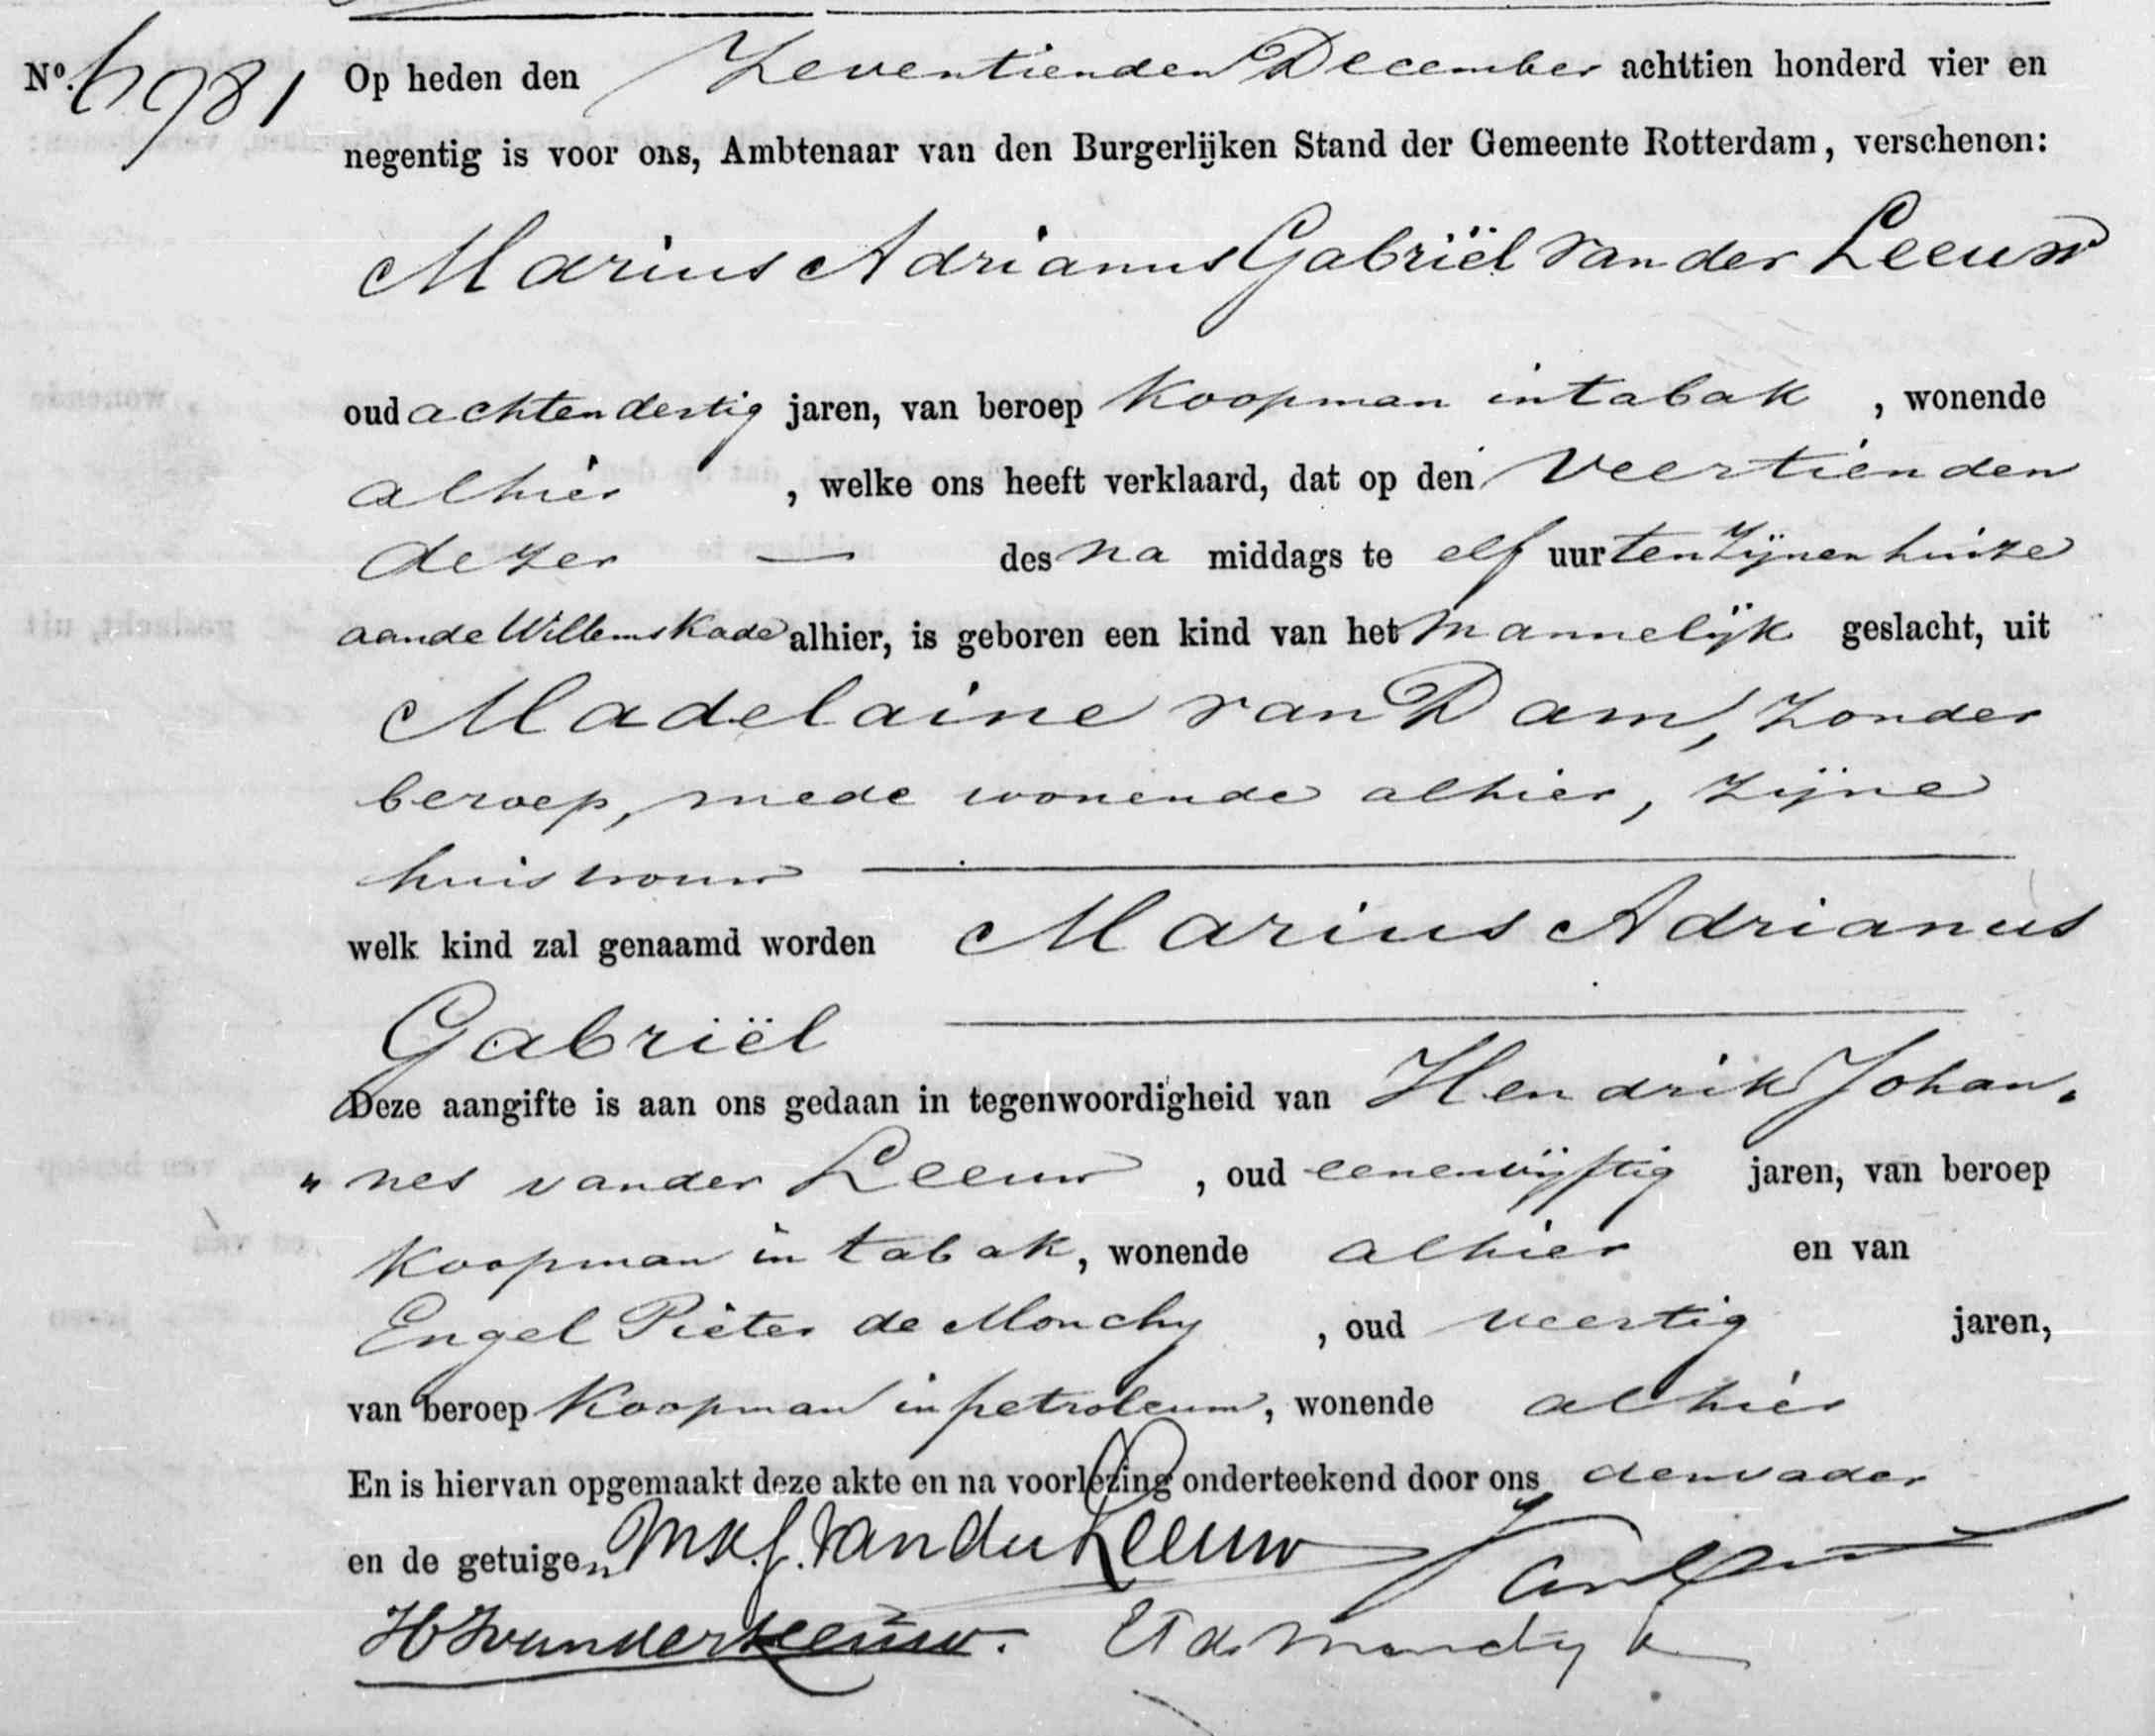 No. 6981 Op heden den Zeventienden December achttien honderd vier en
negentig is voor ons, Ambtenaar van den Burgerlijken Stand der Gemeente Rotterdam, verschenen:
Marius Adrianus Gabriël van der Leeuw
oud achtendertig jaren, van beroep Koopman in tabak, wonende
alhier, welke ons heeft verklaard, dat op den Veertienden
dezer — des na middags te elf uur ten zijnen huize
aan de Willemskade alhier, is geboren een kind van het mannelijk geslacht, uit
Madelaine van Dam, zonder
beroep, mede wonende alhier, zijne
huisvrouw
welk kind zal genaamd worden Marius Adrianus
Gabriël
Deze aangifte is aan ons gedaan in tegenwoordigheid van Hendrik Johan„
„nes van der Leeuw, oud eenenvijftig jaren, van beroep
Koopman in tabak, wonende alhier en van
Engel Pieter de Monchy, oud veertig jaren,
van beroep Koopman in petroleum, wonende alhier
En is hiervan opgemaakt deze akte en na voorlezing onderteekend door ons den vader
en de getuigen M.A.G. van der Leeuw
HJ van der Leeuw. EP de Monchy